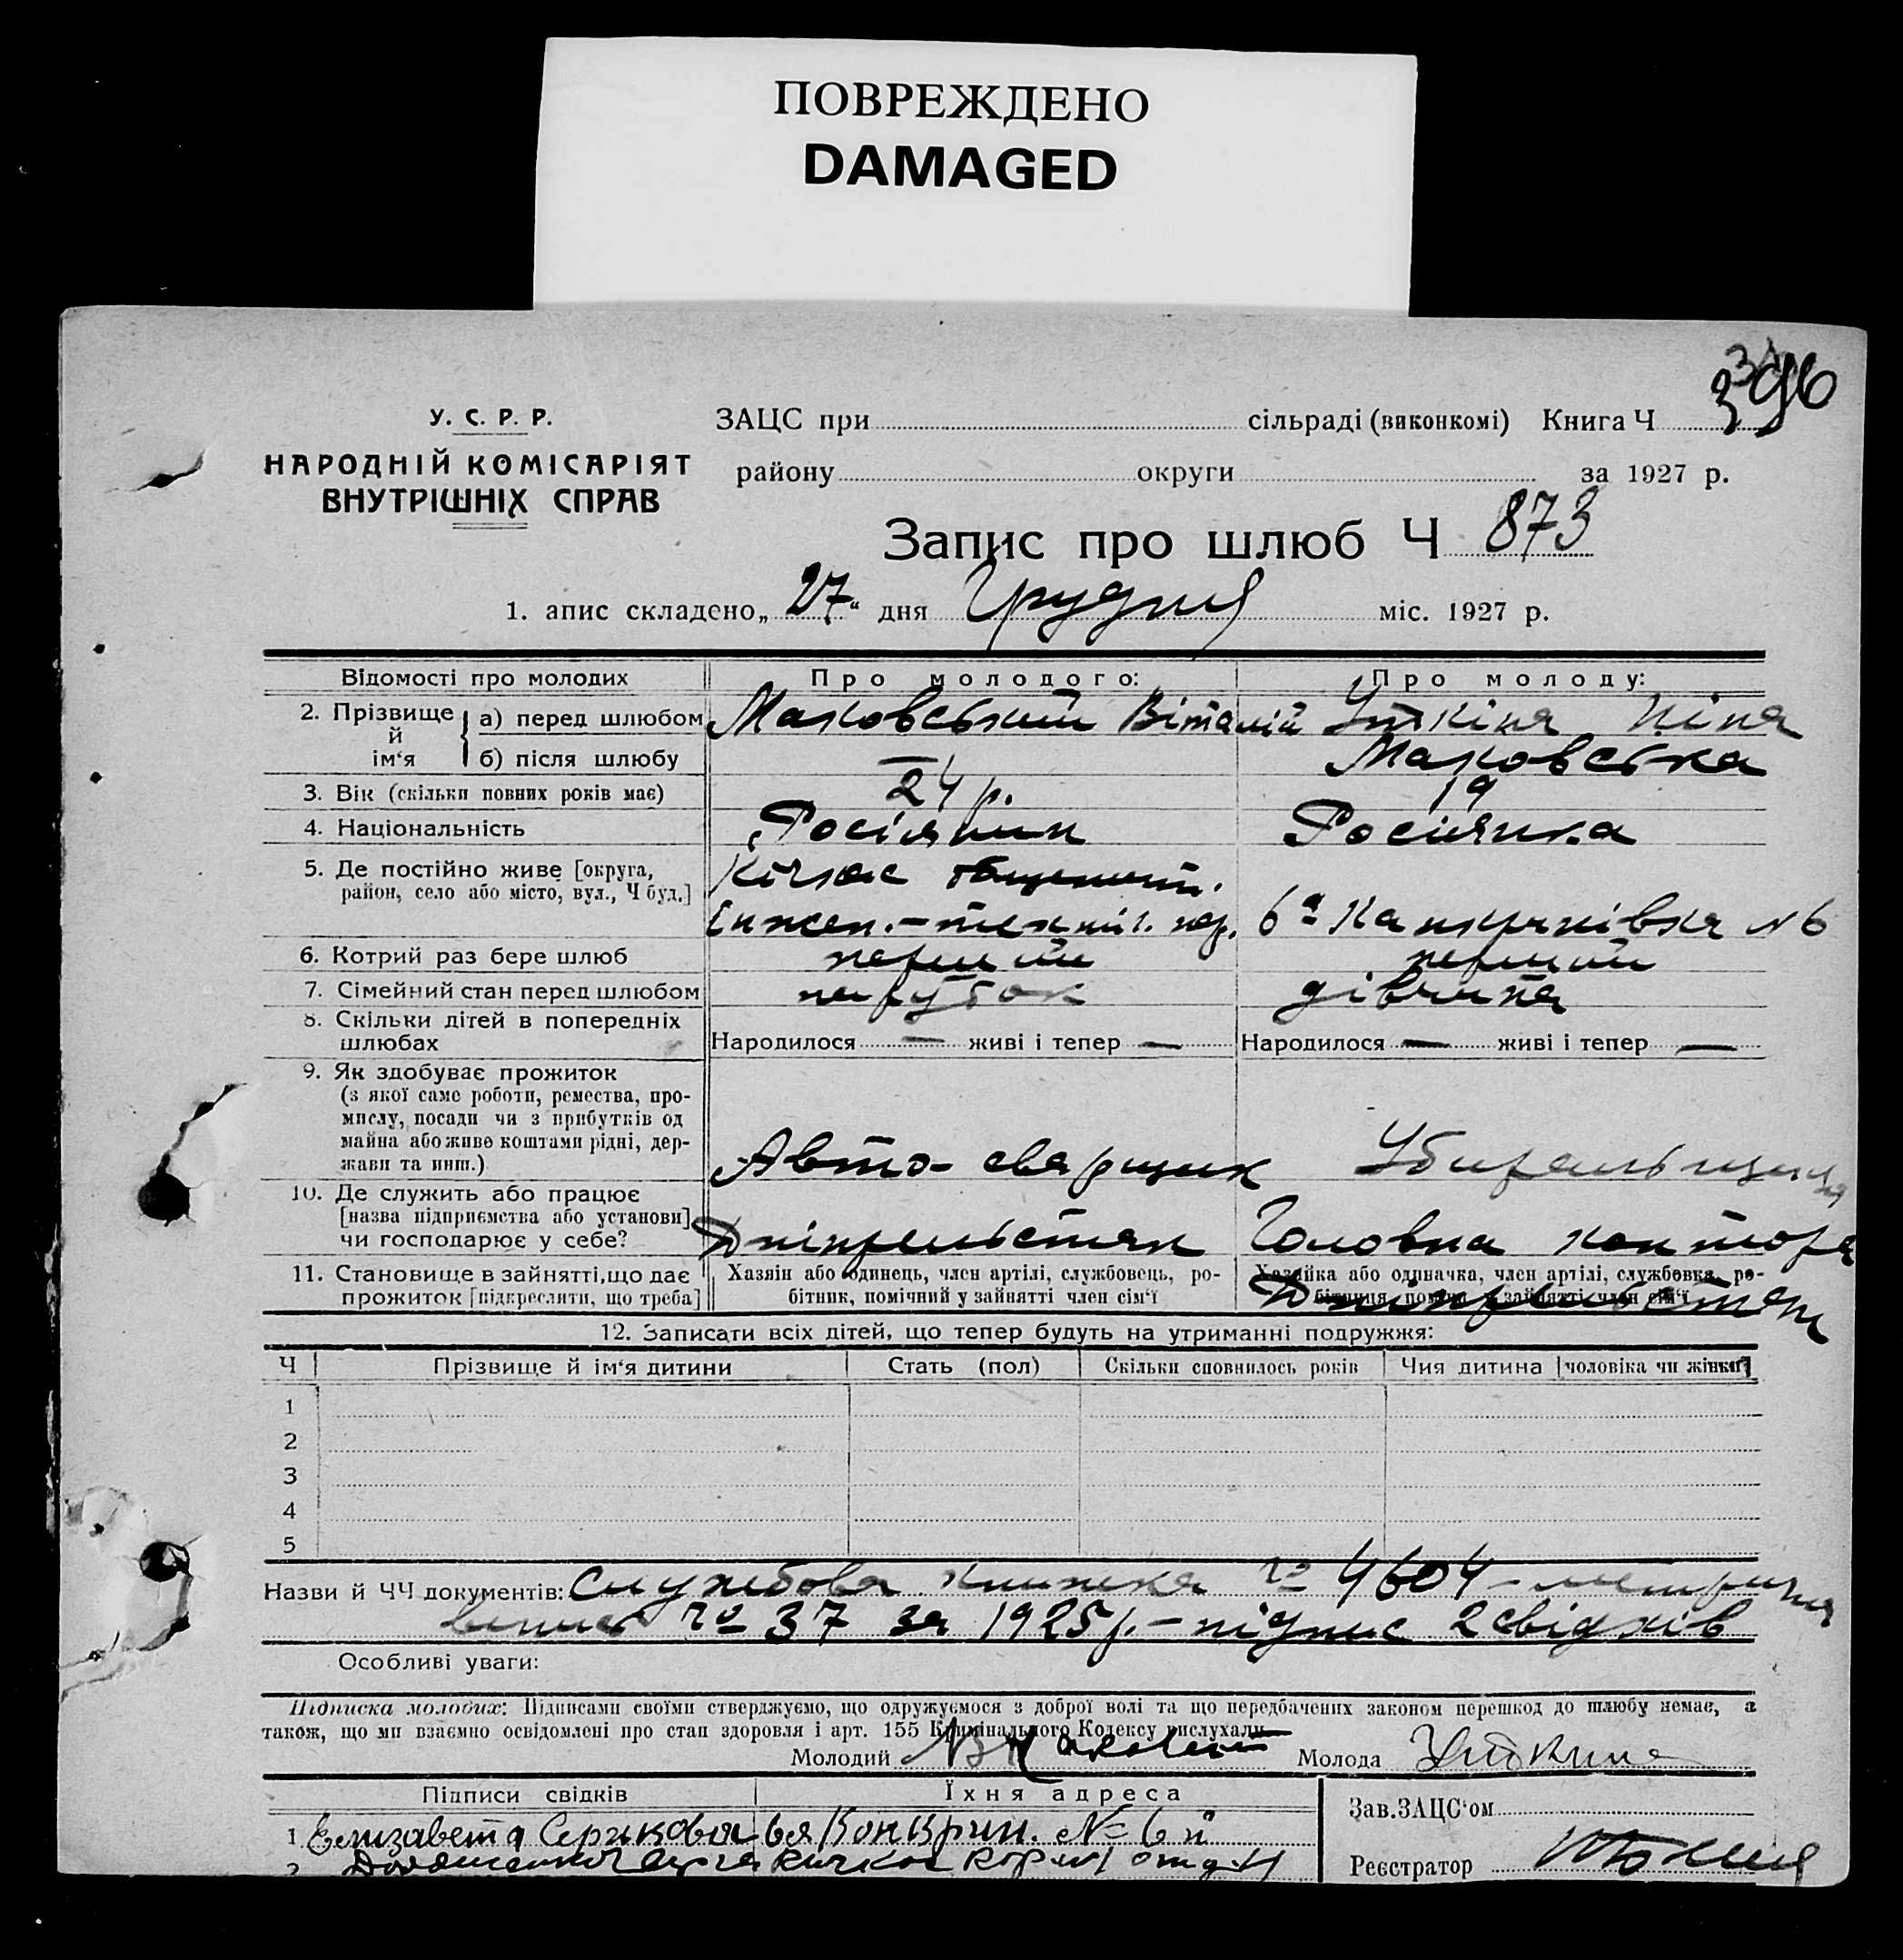 ПОВРЕЖДЕНО
DAMAGED
396
У. С. Р. Р.
НАРОДНІЙ КОМІСАРІЯТ
ВНУТРІШНІХ СПРАВ
ЗАЦС при сільраді (виконкомі) Книга Ч
району округи за 1927 р.
Запис про шлюб Ч 873
1. апис складено „27“ дня Грудня міс. 1927 р.
Відомості про молодих Про молодого: Про молоду:
2. Прізвище й ім‘я а) перед шлюбом Маковський Віталій Уткіна Ніна
б) після шлюбу — Маковська
3. Вік (скільки повних років має) 24 р. 19
4. Національність Росіянин Росіянка
5. Де постійно живе [округа, район, село або місто, вул., Ч буд.] Кічкас Інжен.-техніч. 6а Канкринівка №6
6. Котрий раз бере шлюб перший перший
7. Сімейний стан перед шлюбом парубок дівчина
8. Скільки дітей в попередніх шлюбах Народилося — живі і тепер — Народилося — живі і тепер —
9. Як здобуває прожиток
(з якої саме роботи, ремества, про-
мислу, посади чи з прибутків од
майна або живе коштами рідні, дер-
жави та инш.) Авто-сварщик Убиральщиця
10. Де служить або працює
[назва підприємства або установи]
чи господарює у себе? Дніпрельстан Головна контора Дніпрельстан
11. Становище в зайнятті, що дає прожиток [підкреслити, що треба] Хазяїн або одинець, член артілі, службовець, ро-
бітник, помічний у зайнятті член сім‘ї Хазяйка або одиначка, член артілі, службовка, ро-
бітниця, помічна у зайнятті член сім‘ї
12. Записати всіх дітей, що тепер будуть на утриманні подружжя:
Ч Прізвище й ім‘я дитини Стать (пол) Скільки сповнилось років Чия дитина [чоловіка чи жінки]
1
2
3
4
5
Назви й ЧЧ документів: Службова книжка № 4604 – метрична
випис № 37 за 1925 р. – підпис 2 свідків
Особливі уваги:
Підписка молодих: Підписами своїми стверджуємо, що одружуємося з доброї волі та що передбачених законом перешкод до шлюбу немає, а
також, що ми взаємно освідомлені про стан здоровля і арт. 155 Кримінального Кодексу вислухали.
Молодий Молода Уткина
Підписи свідків Їхня адреса
1 Елизавета 6я Канкрин. № 6
2 Кичкас
Зав. ЗАЦС‘ом
Реєстратор